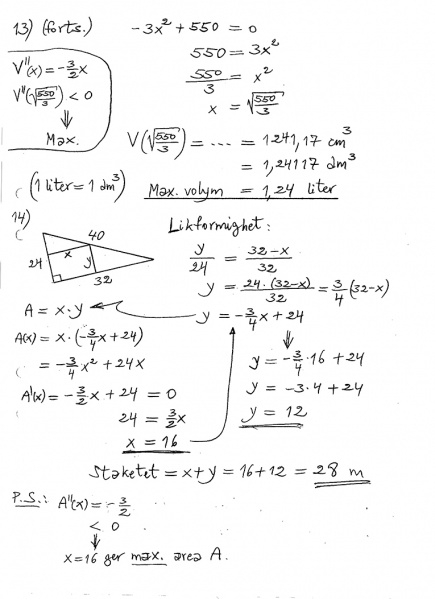 13) (forts.)
-3x² + 550 = 0
550 = 3x²
550/3 = x²
x = √(550/3)
V''(x) = -3/2 x
V''(√(550/3)) < 0
⇓
Max.
V(√(550/3)) = ... = 1241,17 cm³
= 1,24117 dm³
(1 liter = 1 dm³)
Max. volym = 1,24 liter
14)
40
24
x
y
32
Likformighet:
y/24 = (32-x)/32
y = 24·(32-x)/32 = 3/4 (32-x)
y = -3/4 x + 24
A = x·y
A(x) = x·(-3/4 x + 24)
= -3/4 x² + 24x
A'(x) = -3/2 x + 24 = 0
24 = 3/2 x
x = 16
⇓
y = -3/4 · 16 + 24
y = -3·4 + 24
y = 12
Staketet = x+y = 16+12 = 28 m
P.S.: A''(x) = -3/2
< 0
⇓
x=16 ger max. area A.